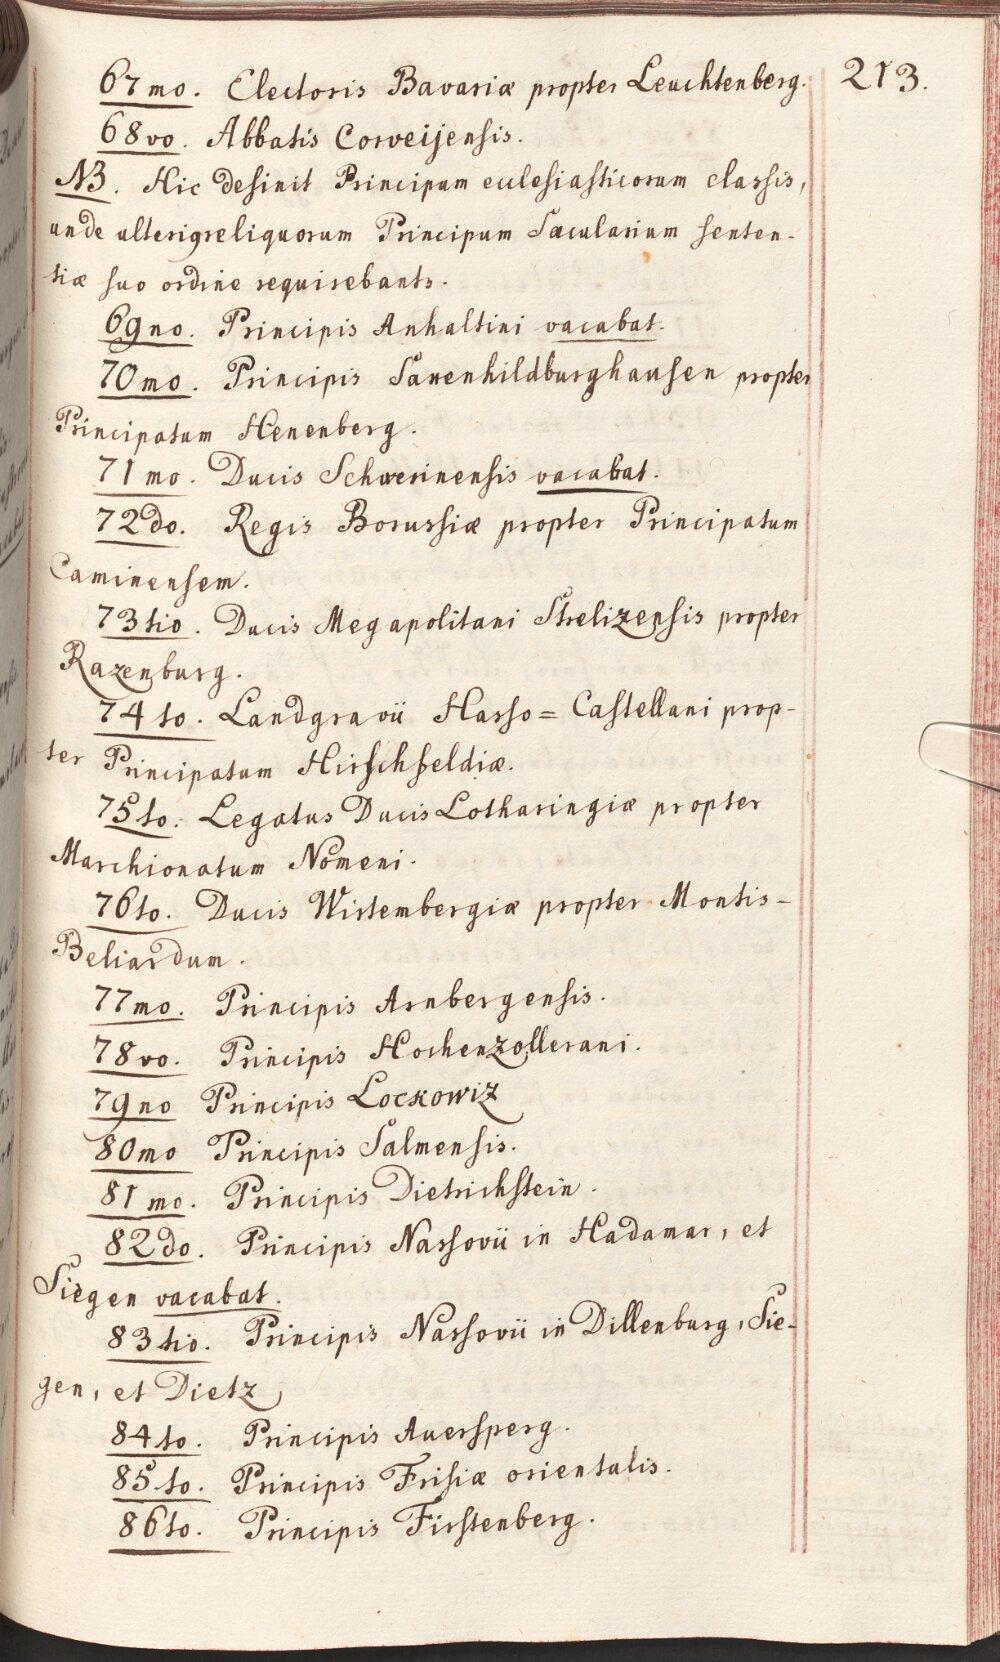 213.
67mo. Electoris Bavariæ propter Leuchtenberg.
68vo. Abbatis Corveijensis.
NB. Hic desinit Principum ecclesiasticorum classis,
unde alteriq reliquorum Principum Sæcularium senten-
tiæ suo ordine requirebantr.
69no. Principis Anhaltini vacabat.
70mo. Principis Saxenhildburghausen propter
Principatum Henenberg.
71mo. Ducis Schwerinensis vacabat.
72do. Regis Borussiæ propter Principatum
Caminensem.
73tio. Ducis Megapolitani Strelizensis propter
Razenburg.
74to. Landgravii Hasso=Castellani prop-
ter Principatum Hirschfeldiæ.
75to. Legatus Ducis Lotharingiæ propter
Marchionatum Nomeni.
76to. Ducis Wirtembergiæ propter Montis-
Beliardum.
77mo. Principis Arnbergensis.
78vo. Principis Hochenzollerani.
79no Principis Lockowiz
80mo Principis Salmensis.
81mo. Principis Dietrichstein.
82do. Principis Nassovii in Hadamar, et
Siegen vacabat.
83tio. Principis Nassovii in Dillenburg, Sie-
gen, et Dietz
84to. Principis Auersperg.
85to. Principis Frisiæ orientalis.
86to. Principis Firstenberg.